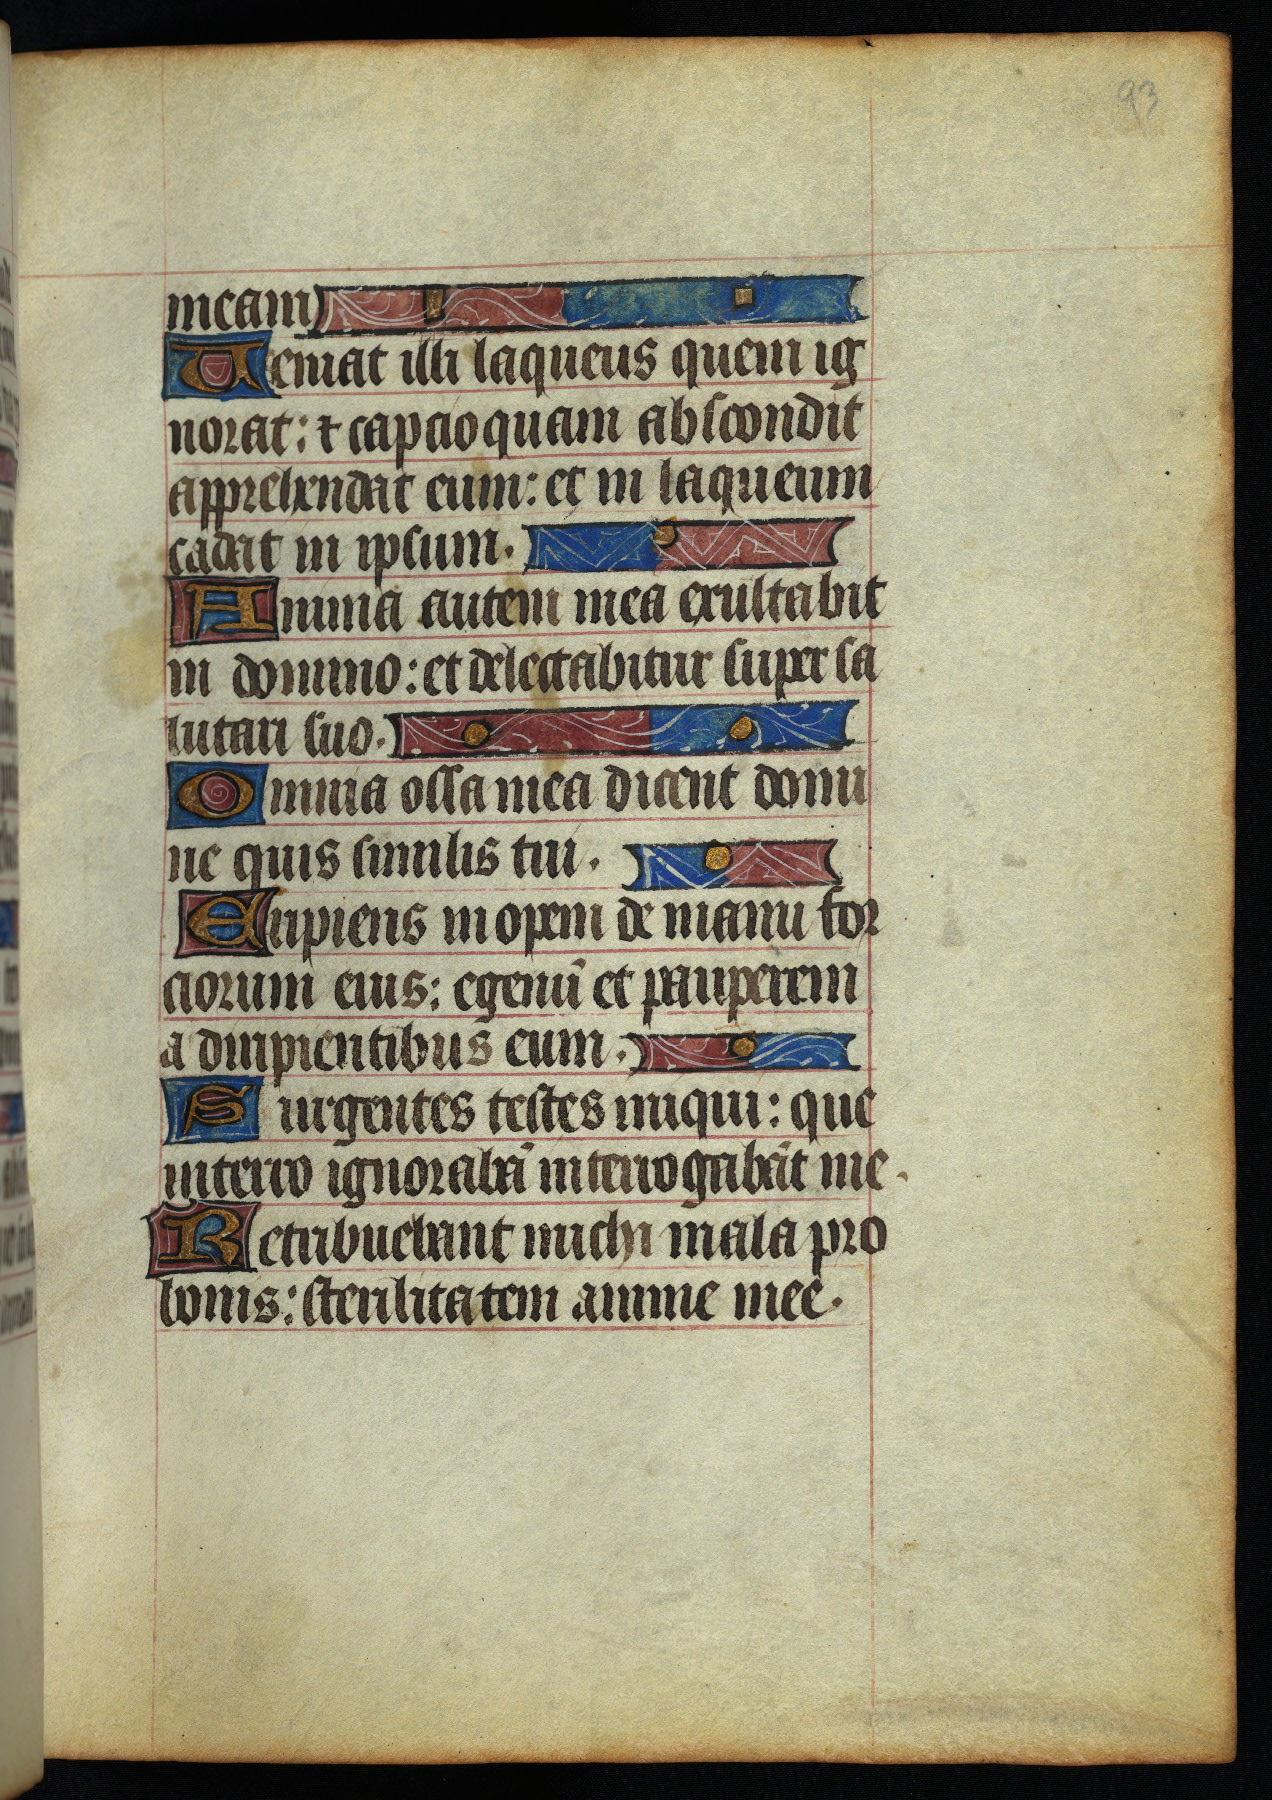 93
meam
Ueniat illi laqueus quem ig
norat: ⁊ capcio quam abscondit
apprehendat eum: et in laqueum
cadat in ipsum.
Anima autem mea exultabit
in domino: et delectabitur super sa
lutari suo.
Omnia ossa mea dicent domi
ne quis similis tui.
Eripiens inopem de manu for
ciorum eius: egenū et pauperem
a diripientibus eum.
Surgentes testes iniqui: que
interro ignorabā interrogabāt me.
Retribuebant michi mala pro
bonis: sterilitatem anime mee.